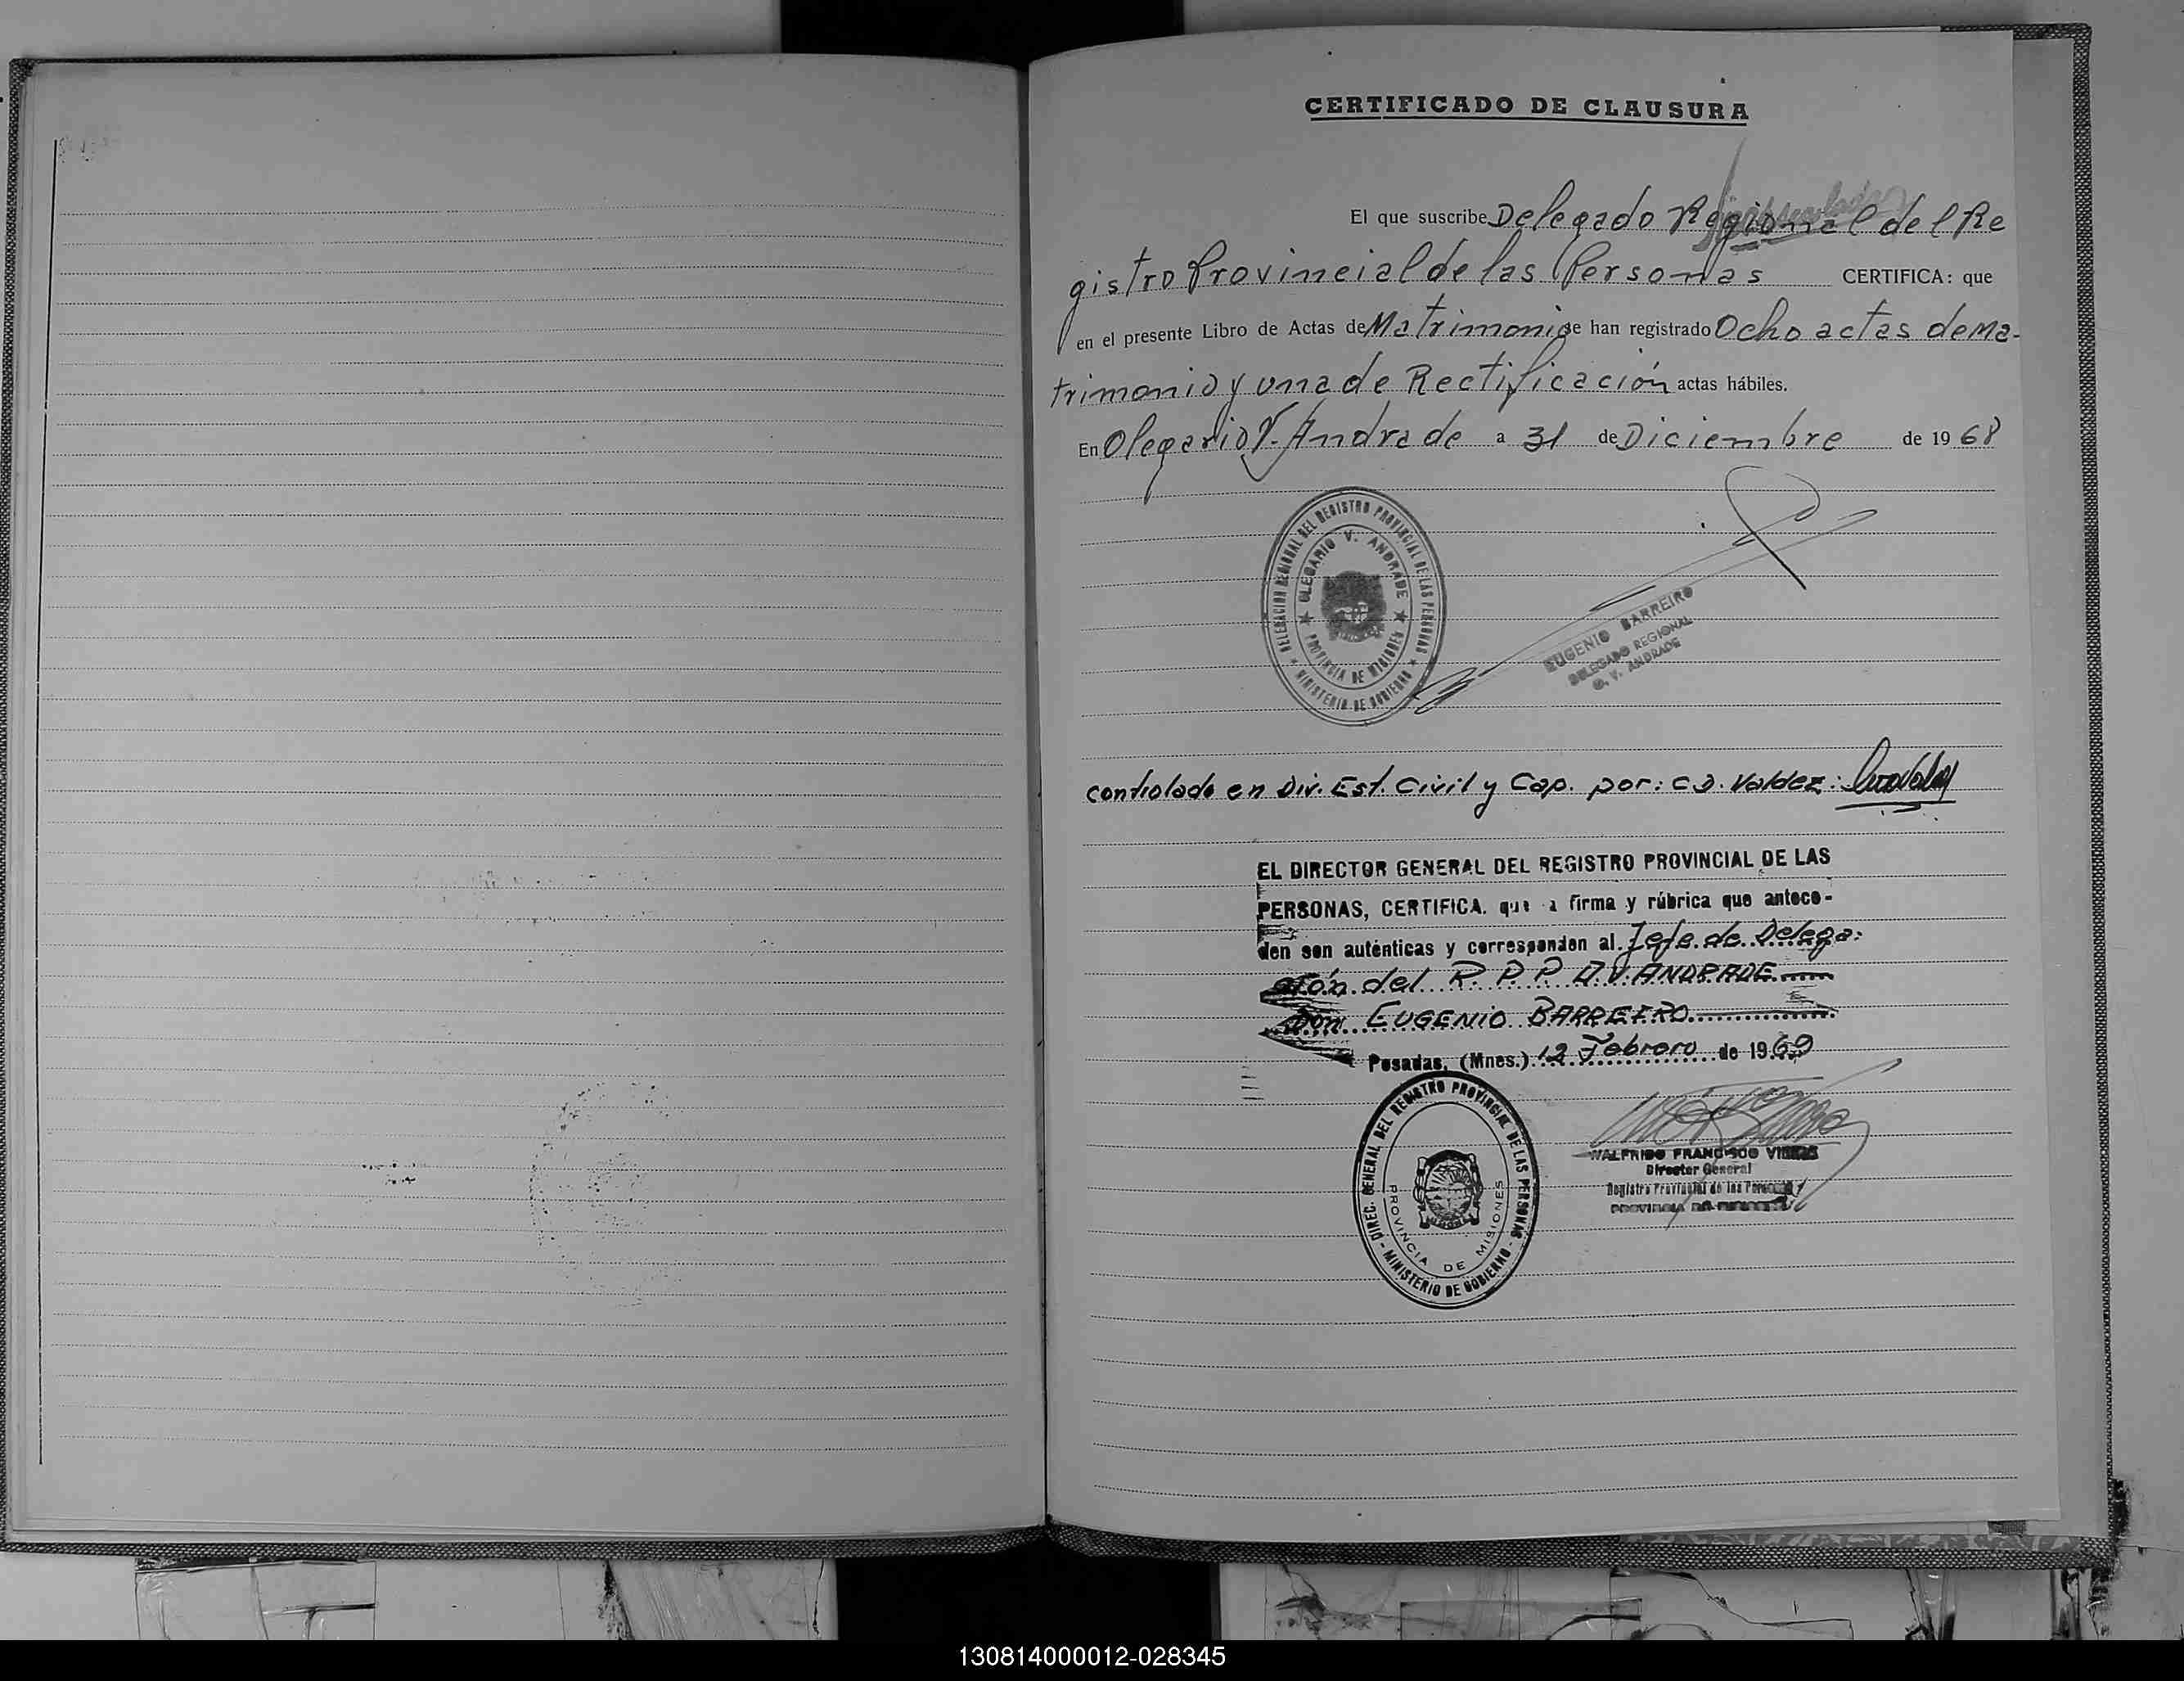 CERTIFICADO DE CLAUSURA
El que suscribe Delegado Regional del Re
gistro Provincial de las Personas CERTIFICA: que
en el presente Libro de Actas de Matrimonio se han registrado Ocho actas de Ma-
trimonio y una de Rectificación actas hábiles.
En Olegario V. Andrade a 31 de Diciembre de 1968
DELEGACION REGIONAL DEL REGISTRO PROVINCIAL DE LAS PERSONAS
OLEGARIO V. ANDRADE
PROVINCIA DE MISIONES
MINISTERIO DE GOBIERNO
EUGENIO BARREIRO
DELEGADO REGIONAL
O. V. ANDRADE
controlado en Div. Est. Civil y Cap. por: C.D. Valdez:
EL DIRECTOR GENERAL DEL REGISTRO PROVINCIAL DE LAS
PERSONAS, CERTIFICA. que la firma y rúbrica que antece-
den son auténticas y corresponden al Jefe de Delega-
ción del R. P. P. O.V. ANDRADE
Don EUGENIO BARREIRO
Posadas, (Mnes.) 12 Febrero de 1969
DIREC. GENERAL DEL REGISTRO PROVINCIAL DE LAS PERSONAS
MINISTERIO DE GOBIERNO
PROVINCIA DE MISIONES
WALFRIDO FRANCISCO
Director General
Registro Provincial de las Personas
PROVINCIA DE MISIONES
130814000012-028345